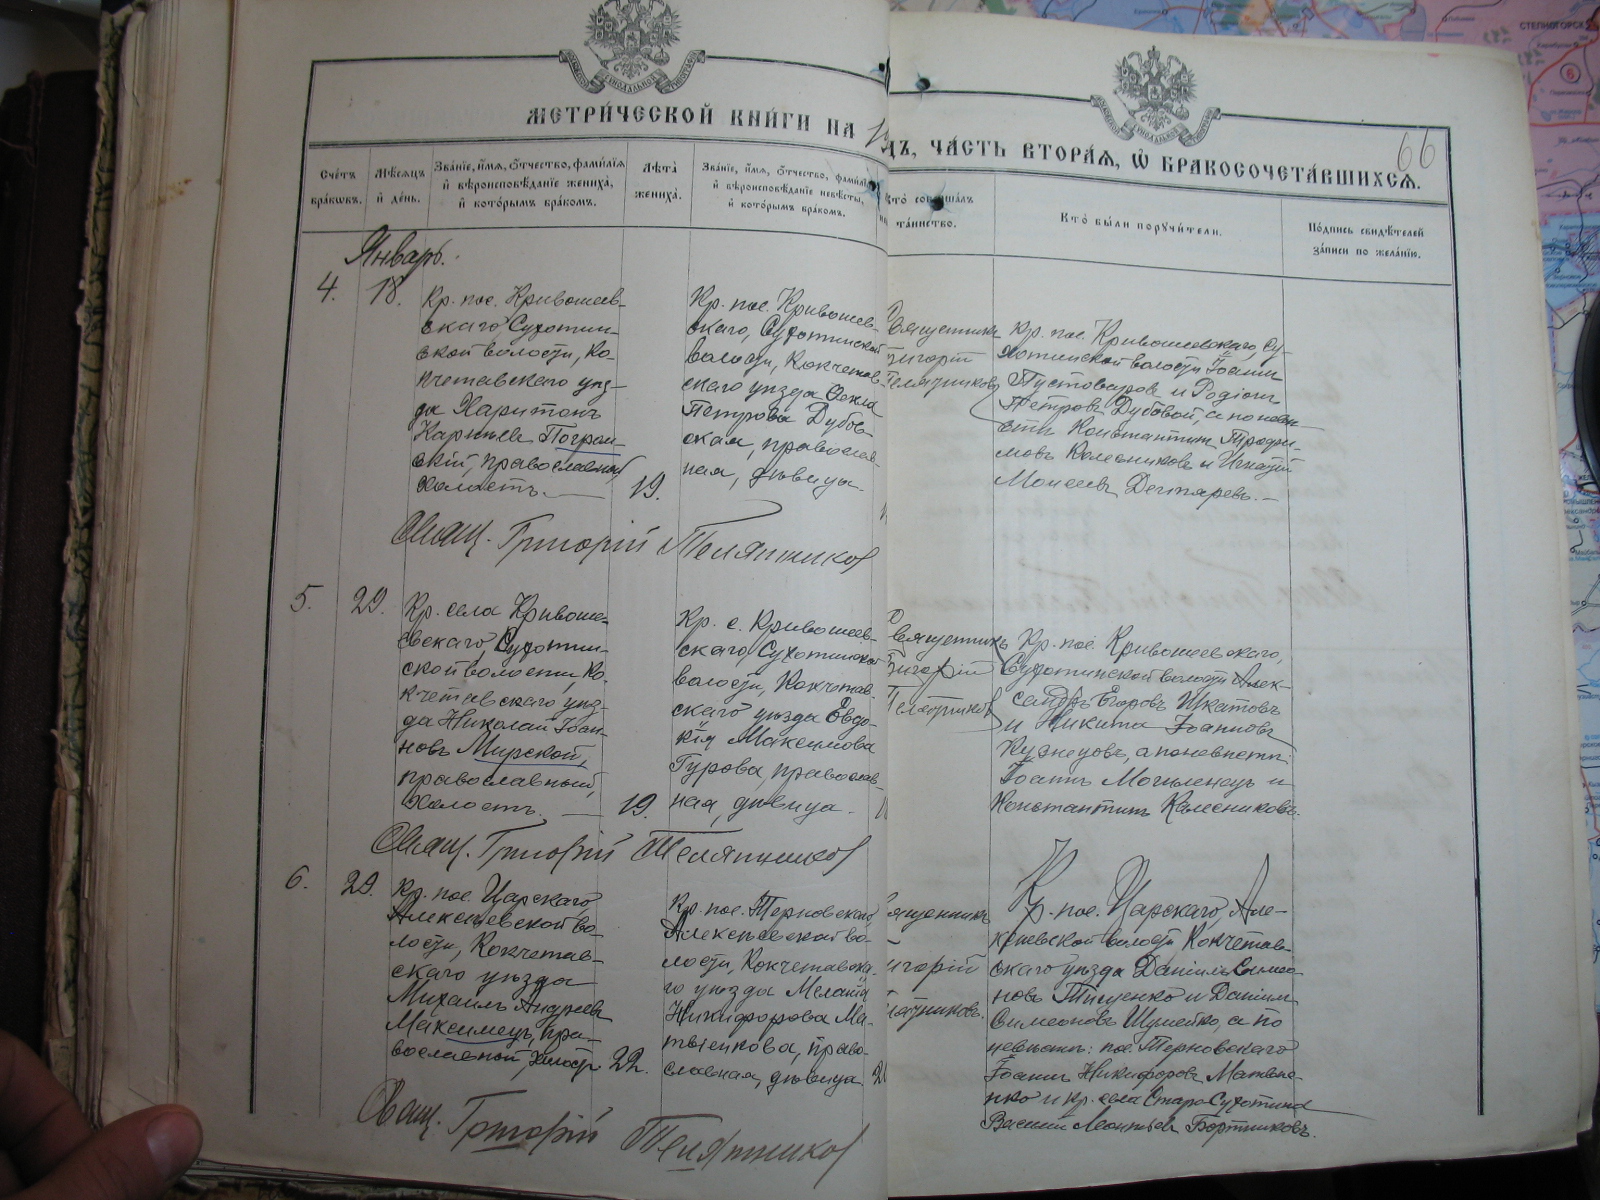 МЕТРИ́ЧЕСКОЙ КНИ́ГИ НА
ДЪ, ЧА́СТЬ ВТОРА́Я, Ѡ҆ БРАКОСОЧЕТА́ВШИХСЯ.
66
Сче́тъ бра́кѡвъ.
Мѣ́сяцъ и҆ де́нь.
Зва́ніе, и҆́мя, ѻ҆́тчество, фамѵ́лія и҆ вѣроисповѣ́даніе жениха̀, и҆ кото́рымъ бра́комъ.
Лѣ́та жениха̀.
Зва́ніе, и҆́мя, ѻ҆́тчество, фамѵ́лія и҆ вѣроисповѣ́даніе невѣ́сты, и҆ кото́рымъ бра́комъ.
Кто̀ соверша́лъ та́инство.
Кто̀ бы́ли порꙋчи́тели.
По́дпись свидѣ́телей за́писи по жела́нію.
Январь.
4.
18.
Кр. пос. Кривошеев-
скаго, Сухотин-
ской волости, Ко-
кчетавскаго уѣз-
да Харитонъ
Карпѣевъ
православный
холостъ.
19.
Кр. пос. Кривошеев-
скаго, Сухотинской
волости, Кокчетав-
скаго уѣзда Ѳекла
Петрова Дубов-
ская, православ-
ная, дѣвица.
Священникъ
Григорій
Телятниковъ
Кр. пос. Кривошеевскаго, Су-
хотинской волости Іоаннъ
Пустоваровъ и Родіонъ
Петровъ Дубовой, а по невѣ-
стѣ Константинъ Трофи-
мовъ Колесниковъ и Игнатій
Моисеевъ Дегтяревъ.
Свящ. Григорій Телятниковъ
5.
29.
Кр. села Кривоше-
евскаго, Сухотин-
ской волости, Ко-
кчетавскаго уѣз-
да Николай Іоан-
новъ Мирской,
православный,
холостъ.
19.
Кр. с. Кривошеев-
скаго, Сухотинской
волости, Кокчетав-
скаго уѣзда Евдо-
кія Максимова
Гурова, православ-
ная, дѣвица.
Священникъ
Григорій
Телятниковъ
Кр. пос. Кривошеевскаго,
Сухотинской волости Алек-
сандръ Егоровъ Шкатовъ
и Никита Іоанновъ
Кузнецовъ, а по невѣстѣ:
Іоаннъ Могиленецъ и
Константинъ Колесниковъ.
Свящ. Григорій Телятниковъ
6.
29.
Кр. пос. Царскаго
Алексѣевской во-
лости, Кокчетав-
скаго уѣзда
Михаилъ Андреевъ
Максимецъ, пра-
вославной, холостъ
22.
Кр. пос. Терновскаго,
Алексѣевской во-
лости, Кокчетавска-
го уѣзда Меланія
Никифорова Ма-
твіенкова, право-
славная, дѣвица
Священникъ
Григорій
Телятниковъ.
Кр. пос. Царскаго, Але-
ксѣевской волости Кокчетав-
скаго уѣзда Даніилъ Симео-
новъ Тищенко и Даніилъ
Симеоновъ Шумейко, а по
невѣстѣ: пос. Терновскаго
Іоаннъ Никифоровъ Матвіе-
нко и кр. села Старо-Сухотина
Василій Леонтьевъ Бортниковъ.
Свящ. Григорій Телятниковъ
СТЕПНОГОРСК